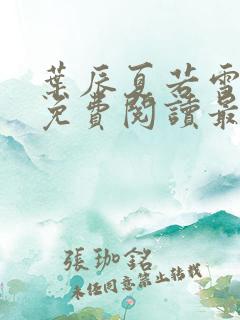 葉辰夏若雪
免費閱讀最
張珈銘
未經同意禁止轉載